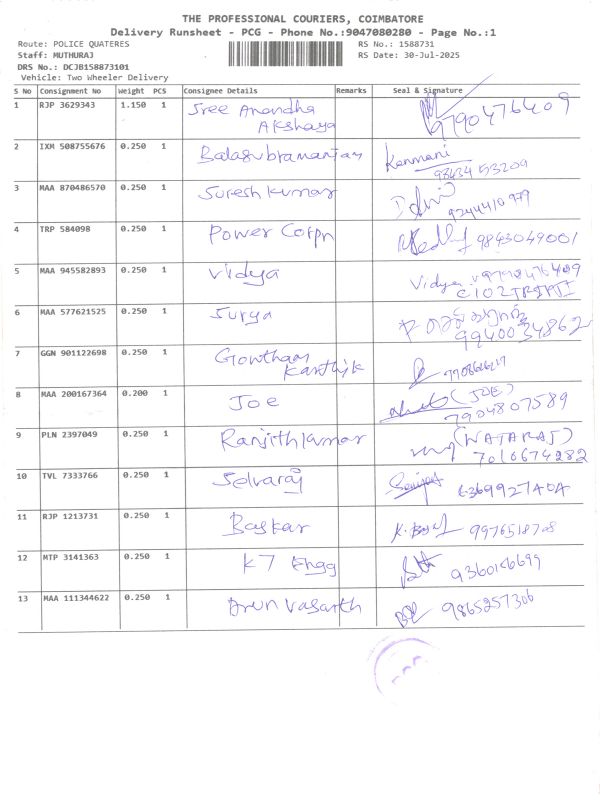 THE PROFESSIONAL COURIERS, COIMBATORE
Delivery Runsheet - PCG - Phone No.:9047080280 - Page No.:1
Route: POLICE QUATERES RS No.: 1588731
Staff: MUTHURAJ RS Date: 30-Jul-2025
DRS No.: DCJB158873101
Vehicle: Two Wheeler Delivery
S No Consignment No Weight PCS Consignee Details Remarks Seal & Signature
1 RJP 3629343 1.150 1 Sree Anandha 9790476409
Akshaya
2 IXM 508755676 0.250 1 Balasubramaniam Kanmani
98434 53209
3 MAA 870486570 0.250 1 Suresh Kumar
9244410979
4 TRP 584098 0.250 1 Power Corpn 9843049001
5 MAA 945582893 0.250 1 Vidya Vidya
6 MAA 577621525 0.250 1 Surya
9940034862
7 GGN 901122698 0.250 1 Gowtham
Karthik
8 MAA 200167364 0.200 1 Joe (JOE)
7904807589
9 PLN 2397049 0.250 1 Ranjithkumar (NATARAJ)
7010674282
10 TVL 7333766 0.250 1 Selvaraj
11 RJP 1213731 0.250 1 Baskar 9976518708
12 MTP 3141363 0.250 1 K7 Engg
13 MAA 111344622 0.250 1 Arun Vasanth 9865257306